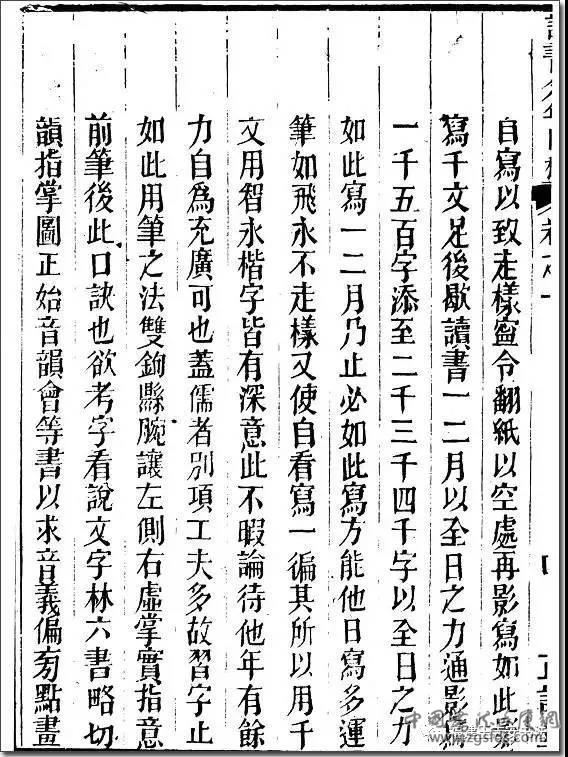 自寫以致走樣寍令翻紙以空處再影寫如此影
寫千文足後歇讀書一二月以全日之力通影寫
一千五百字添至二千三千四千字以全日之力
如此寫一二月乃止必如此寫方能他日寫多運
筆如飛永不走樣又使自看寫一徧其所以用千
文用智永楷字皆有深意此不暇論待他年有餘
力自爲充廣可也蓋儒者别項工夫多故習字止
如此用筆之法雙鉤縣腕讓左側右虛掌實指意
前筆後此口訣也欲考字看說文字林六書略切
韻指掌圖正始音韻會等書以求音義偏旁點畫